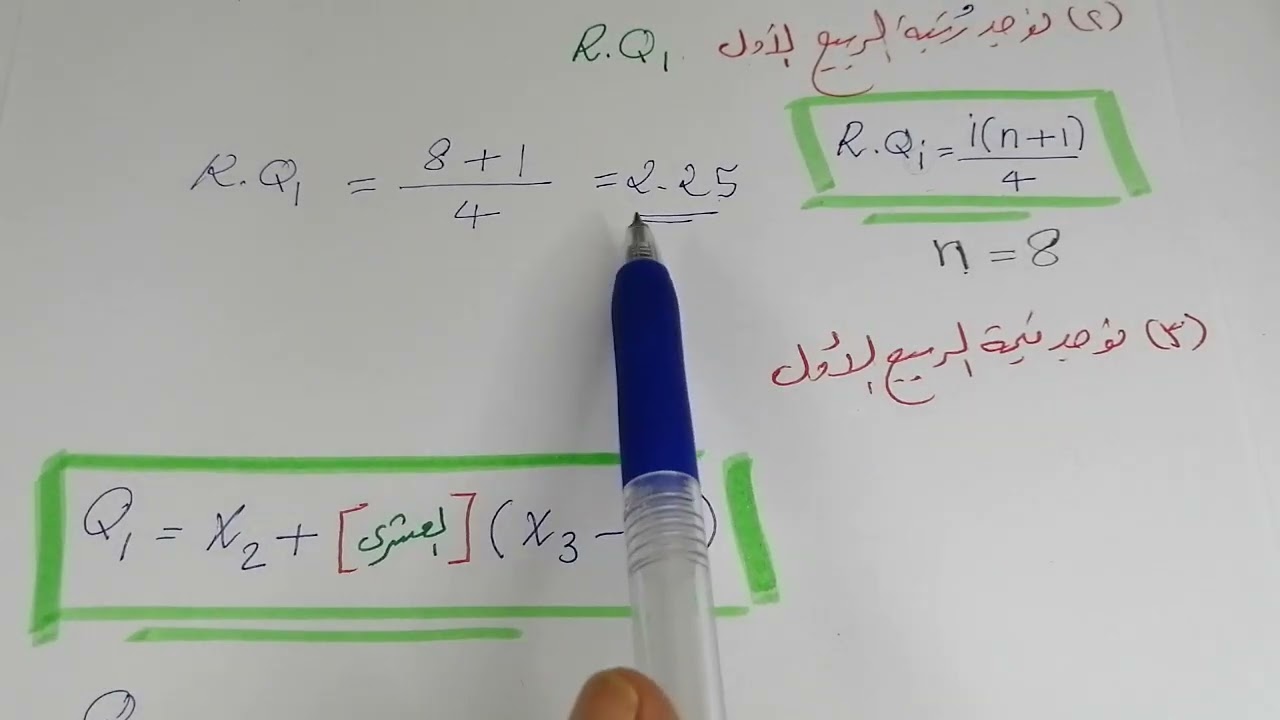 (٢) نوجد رُتبة الربيع الأول R.Q₁
R.Qᵢ = i(n+1)/4
R.Q₁ = 8+1/4 = 2.25
n = 8
(٣) نوجد قيمة الربيع الأول
Q₁ = X₂ + [العشرى] (X₃ - )
Q